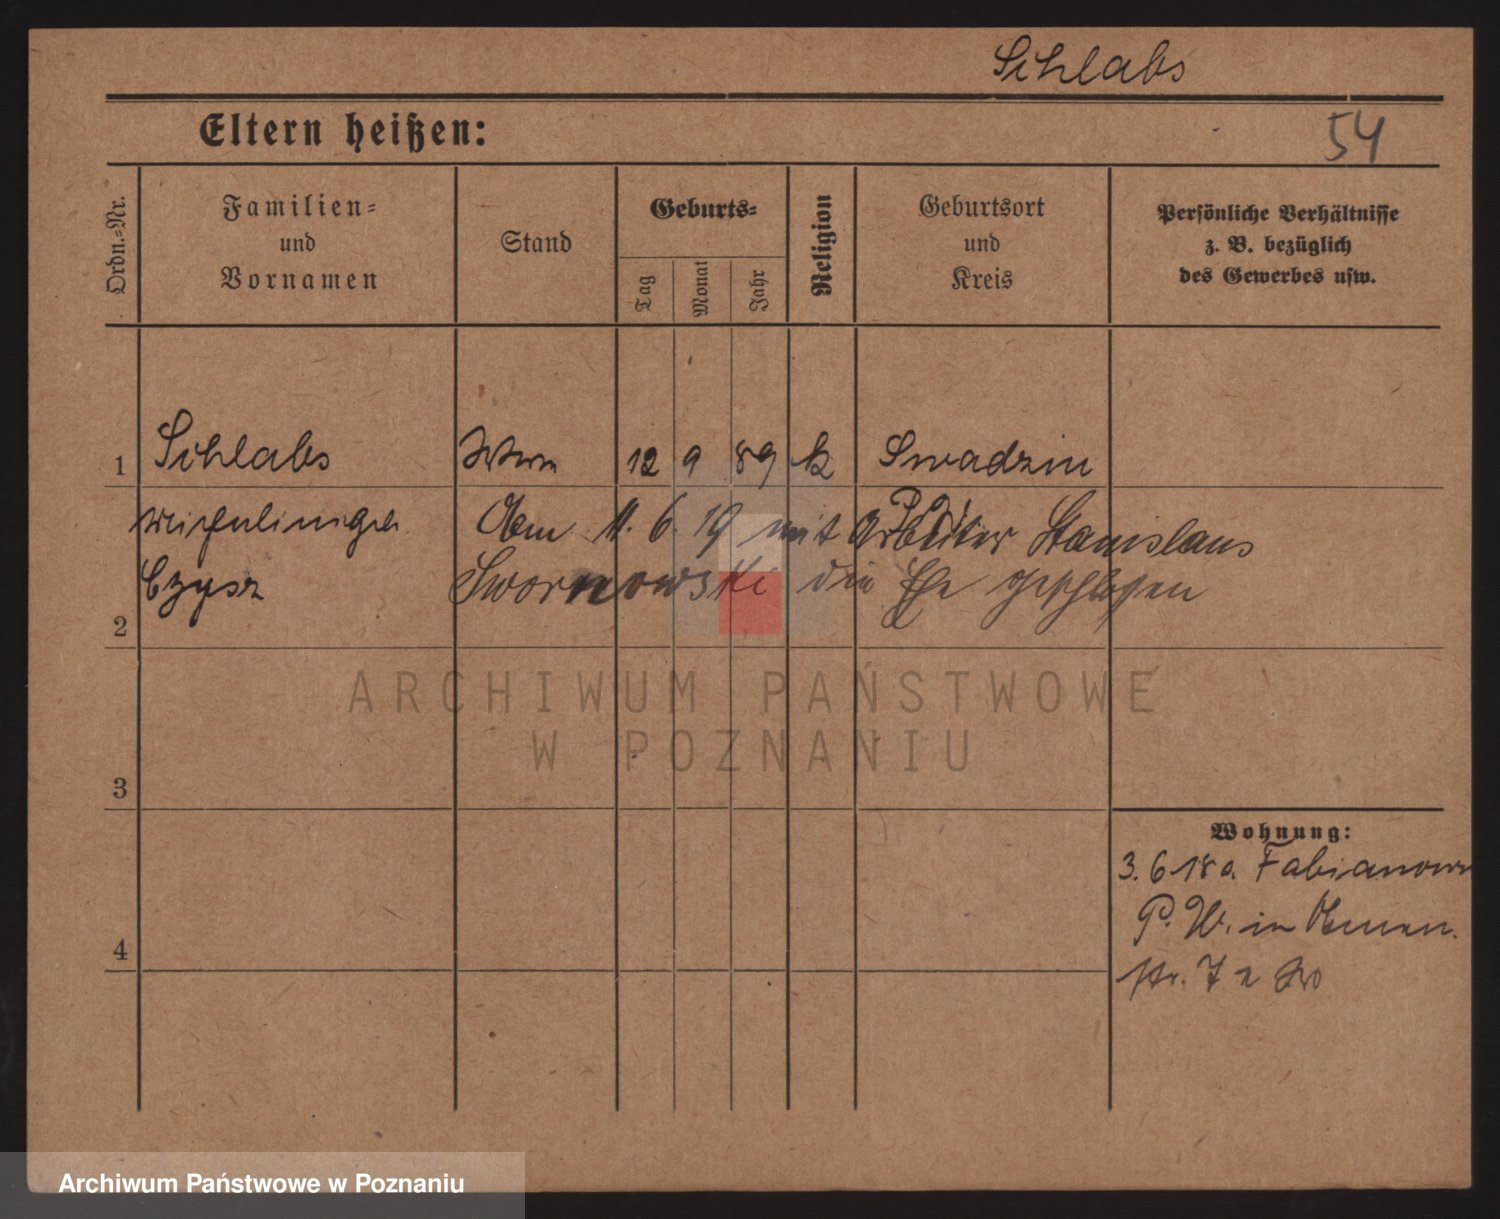 Schlabs
Eltern heißen:
54
Ordn.=Nr.
Familien=
und
Vornamen
Stand
Geburts=
Tag
Monat
Jahr
Religion
Geburtsort
und
Kreis
Persönliche Verhältnisse
z. B. bezüglich
des Gewerbes usw.
1 Schlabs 12 9 89 k Swadzim
Am 11. 6. 19 mit Arbeiter Stanislaus
2 Swornowski die Ehe geschlossen
ARCHIWUM PAŃSTWOWE
W POZNANIU
3
Wohnung:
3. 6 18 a. Fabianowo
P. W. in
4
str. 7 a
Archiwum Państwowe w Poznaniu